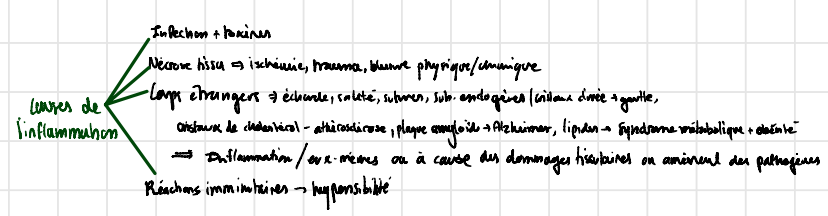 Infection + toxines
Nécrose tissu => ischémie, trauma, blessure physique/chimique
Corps étrangers => écharde, saleté, sutures, sub. endogènes (cristaux d'urée → goutte,
causes de
l'inflammation
cristaux de cholestérol - athérosclérose, plaque amyloïde → Alzheimer, lipides → syndrome métabolique + obésité
=> Inflammation / eux-mêmes ou à cause des dommages tissulaires ou amènent des pathogènes
Réactions immunitaires → hypersibilité